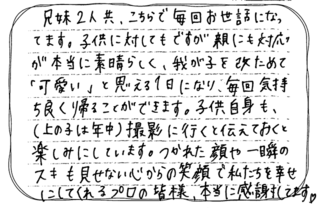 兄妹2人共、こちらで毎回お世話になっ
てます。子供に対してもですが親にも対応
が本当に素晴らしく、我が子を改めて
「可愛い」と思える1日になり、毎回気持
ち良く帰ることができます。子供自身も、
(上の子は年中)撮影に行くと伝えておくと
楽しみにしています。つかれた顔や一瞬の
スキも見せない心からの笑顔で私たちを幸せ
にしてくれるプロの皆様、本当に感謝してます♡